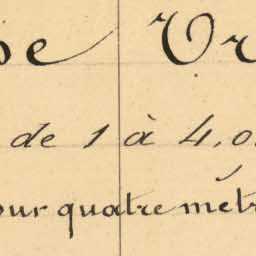 de 1 à 4,0
our quatre métr